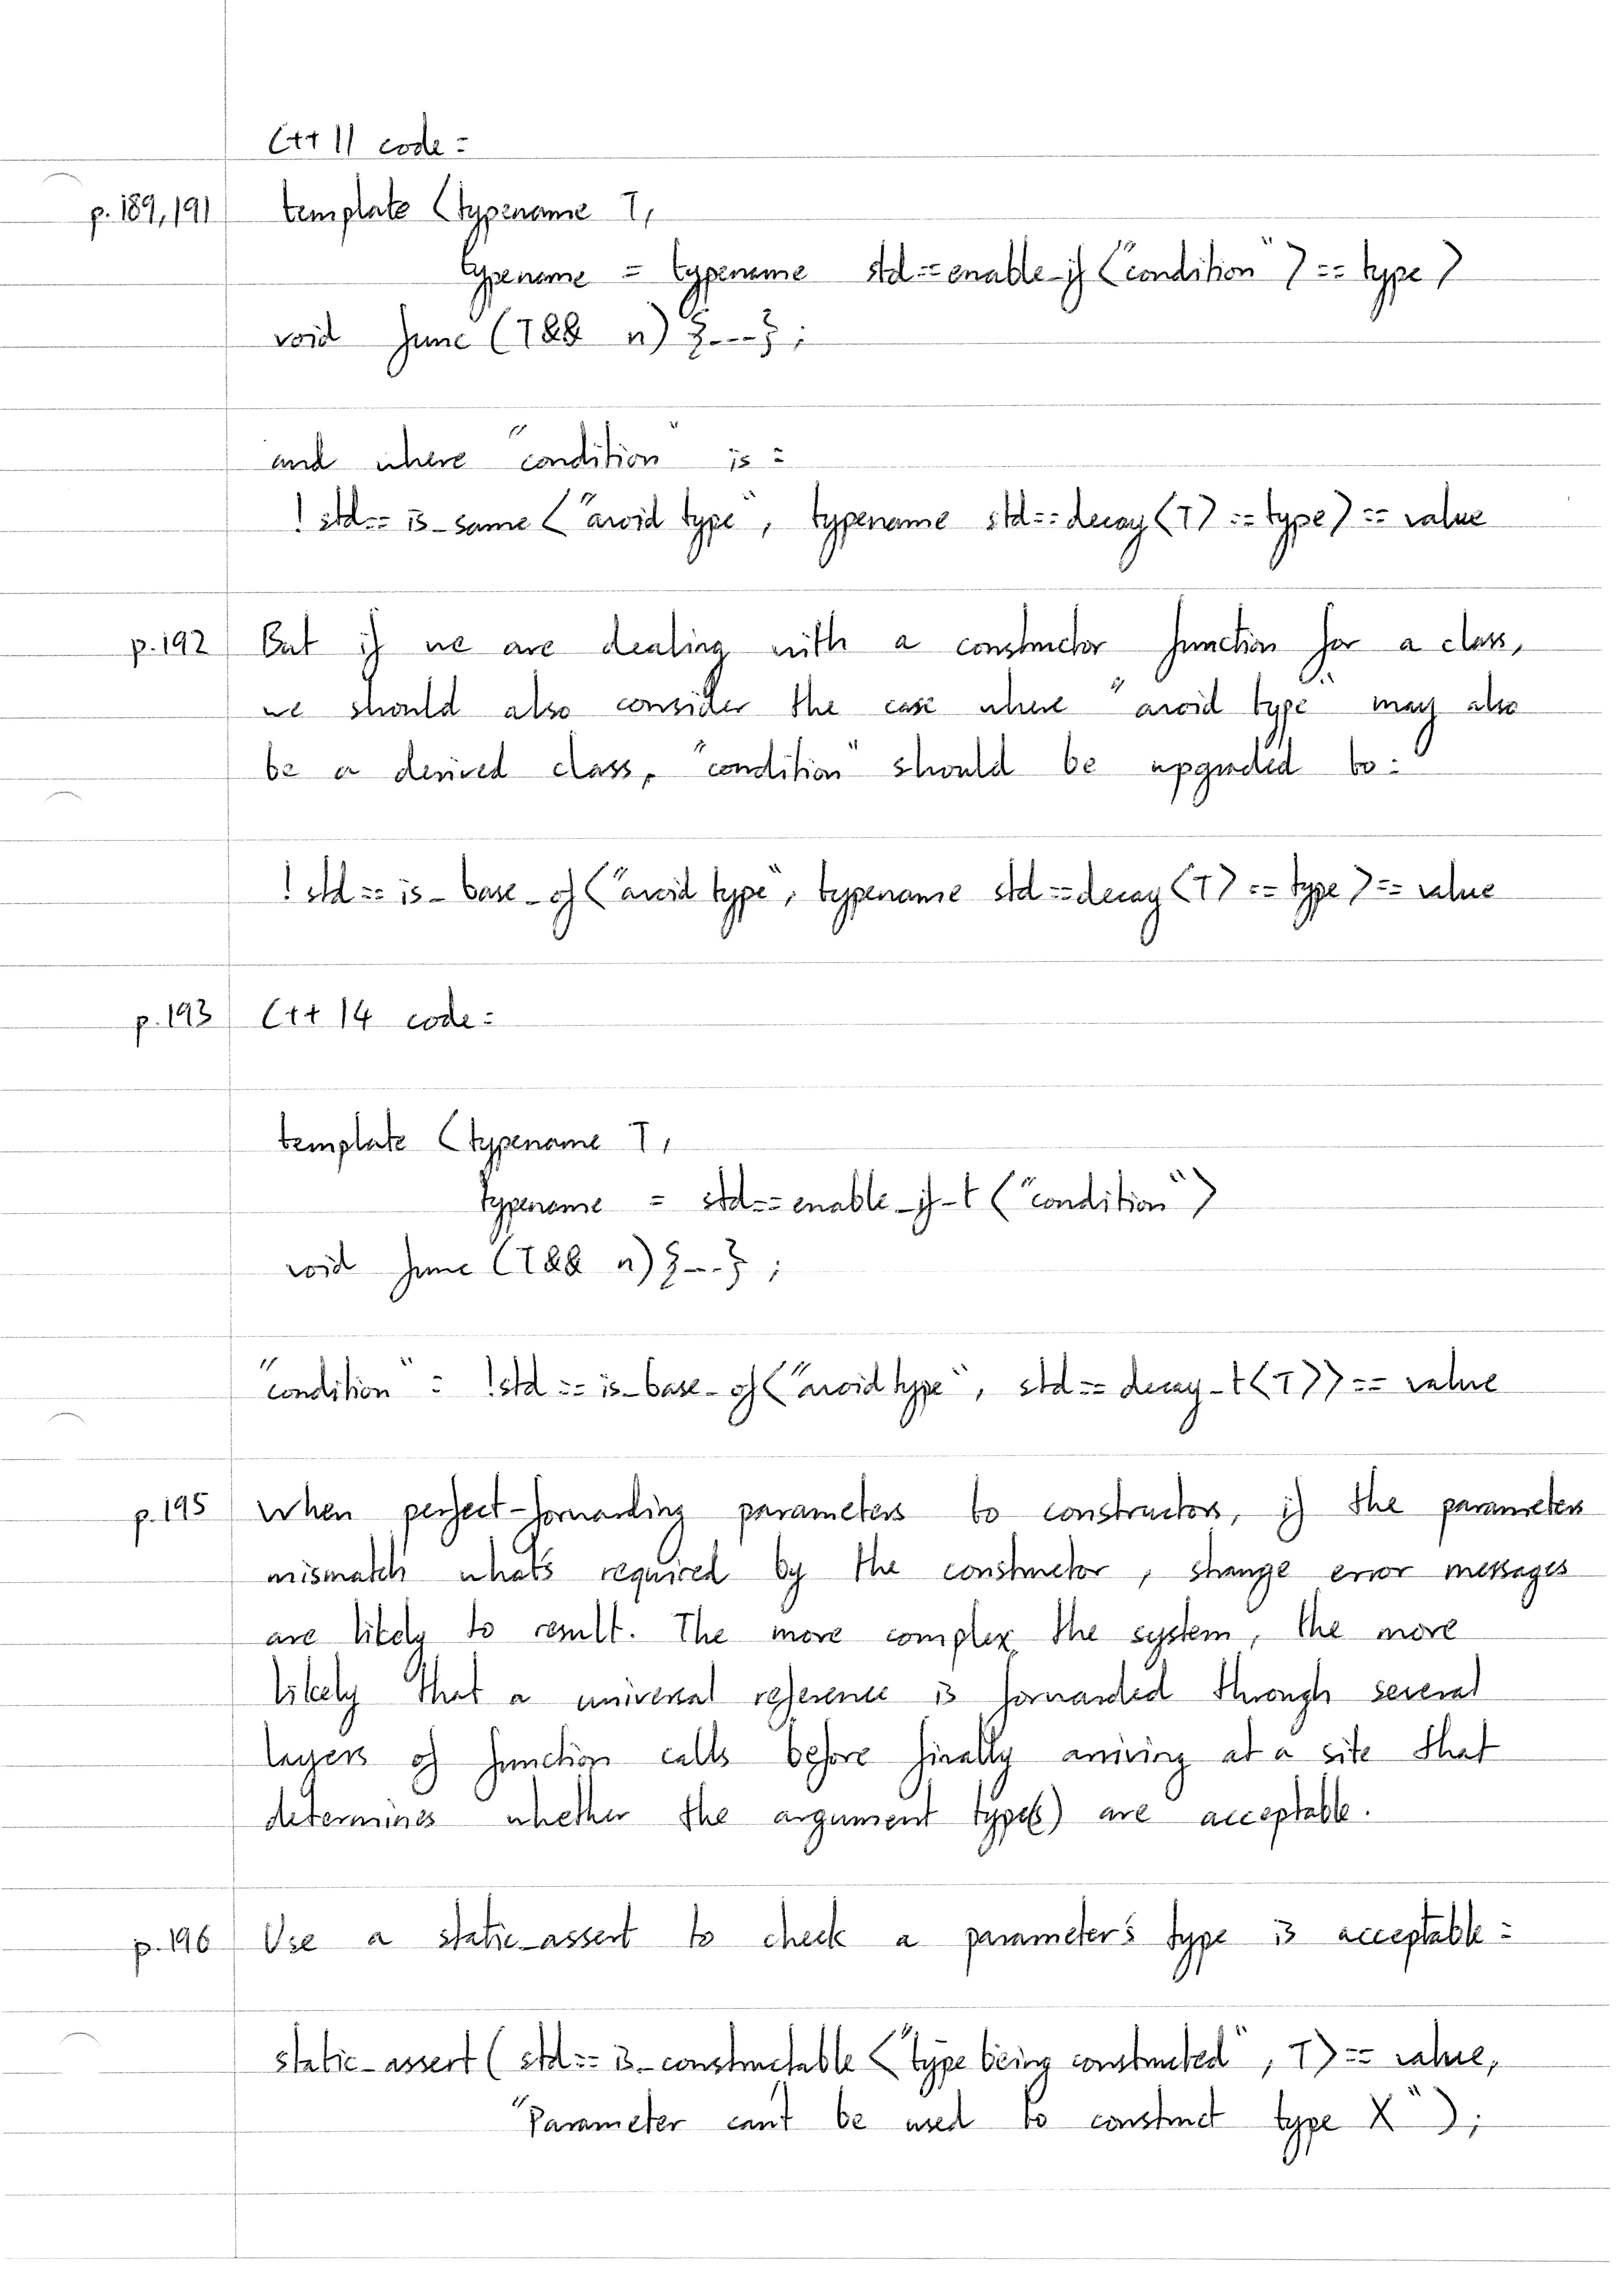 C++ 11 code:
p. 189, 191 template <typename T,
typename = typename std::enable_if<"condition">::type>
void func (T&& n) {...};
and where "condition" is:
!std::is_same<"avoid type", typename std::decay<T>::type>::value
p. 192 But if we are dealing with a constructor function for a class,
we should also consider the case where "avoid type" may also
be a derived class, "condition" should be upgraded to:
!std::is_base_of<"avoid type", typename std::decay<T>::type>::value
p. 193 C++ 14 code:
template <typename T,
typename = std::enable_if_t<"condition">
void func (T&& n) {...};
"condition" : !std::is_base_of<"avoid type", std::decay_t<T>>::value
p. 195 When perfect-forwarding parameters to constructors, if the parameters
mismatch what's required by the constructor, strange error messages
are likely to result. The more complex the system, the more
likely that a universal reference is forwarded through several
layers of function calls before finally arriving at a site that
determines whether the argument type(s) are acceptable.
p. 196 Use a static_assert to check a parameter's type is acceptable:
static_assert( std::is_constructable<"type being constructed", T>::value,
"Parameter can't be used to construct type X");